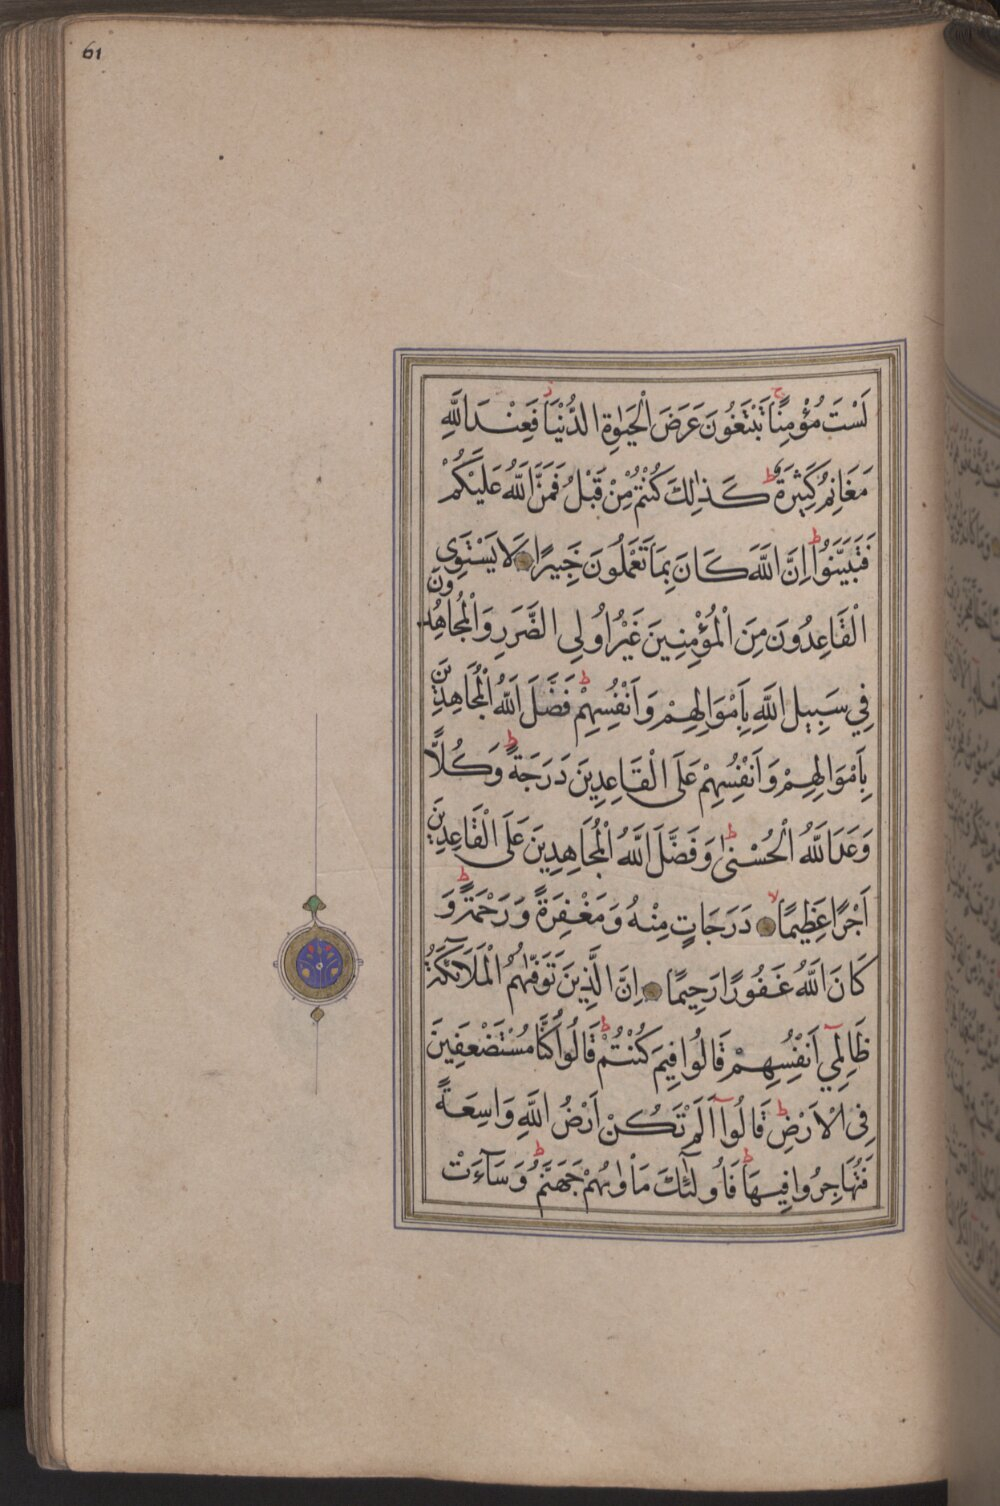 61
لَسْتَ مُؤْمِنًا تَبْتَغُونَ عَرَضَ الْحَيٰوةِ الدُّنْيَا فَعِنْدَ اللَّهِ
مَغَانِمُ كَثِيرَةٌ ط كَذٰلِكَ كُنْتُمْ مِنْ قَبْلُ فَمَنَّ اللَّهُ عَلَيْكُمْ
فَتَبَيَّنُوا ط اِنَّ اللَّهَ كَانَ بِمَا تَعْمَلُونَ خَبِيرًا لَا يَسْتَوِي
الْقَاعِدُونَ مِنَ الْمُؤْمِنِينَ غَيْرُ اُولِي الضَّرَرِ وَالْمُجَاهِدُونَ
فِي سَبِيلِ اللَّهِ بِاَمْوَالِهِمْ وَاَنْفُسِهِمْ ط فَضَّلَ اللَّهُ الْمُجَاهِدِينَ
بِاَمْوَالِهِمْ وَاَنْفُسِهِمْ عَلَى الْقَاعِدِينَ دَرَجَةً ط وَكُلًّا
وَعَدَ اللَّهُ الْحُسْنٰى ط وَفَضَّلَ اللَّهُ الْمُجَاهِدِينَ عَلَى الْقَاعِدِينَ
اَجْرًا عَظِيمًا لا دَرَجَاتٍ مِنْهُ وَمَغْفِرَةً وَرَحْمَةً ط وَ
كَانَ اللَّهُ غَفُورًا رَحِيمًا اِنَّ الَّذِينَ تَوَفّٰيهُمُ الْمَلَآئِكَةُ
ظَالِمِيٓ اَنْفُسِهِمْ قَالُوا فِيمَ كُنْتُمْ ط قَالُوا كُنَّا مُسْتَضْعَفِينَ
فِي الْاَرْضِ ط قَالُوٓا اَلَمْ تَكُنْ اَرْضُ اللَّهِ وَاسِعَةً
فَتُهَاجِرُوا فِيهَا ط فَاُولٰٓئِكَ مَاْوٰيهُمْ جَهَنَّمُ ط وَسَآءَتْ